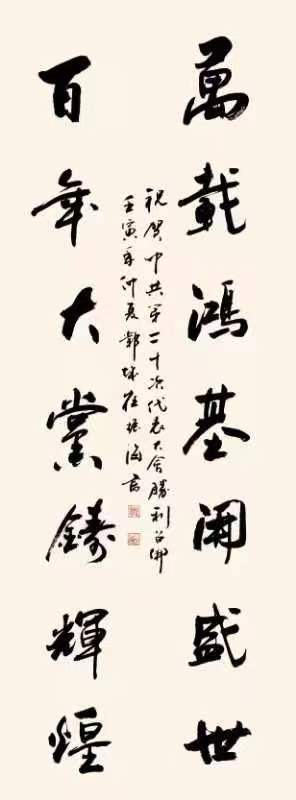 萬載鴻基開盛世
祝賀中共第二十次代表大會勝利召開
壬寅年仲夏海書
百年大黨鑄輝煌